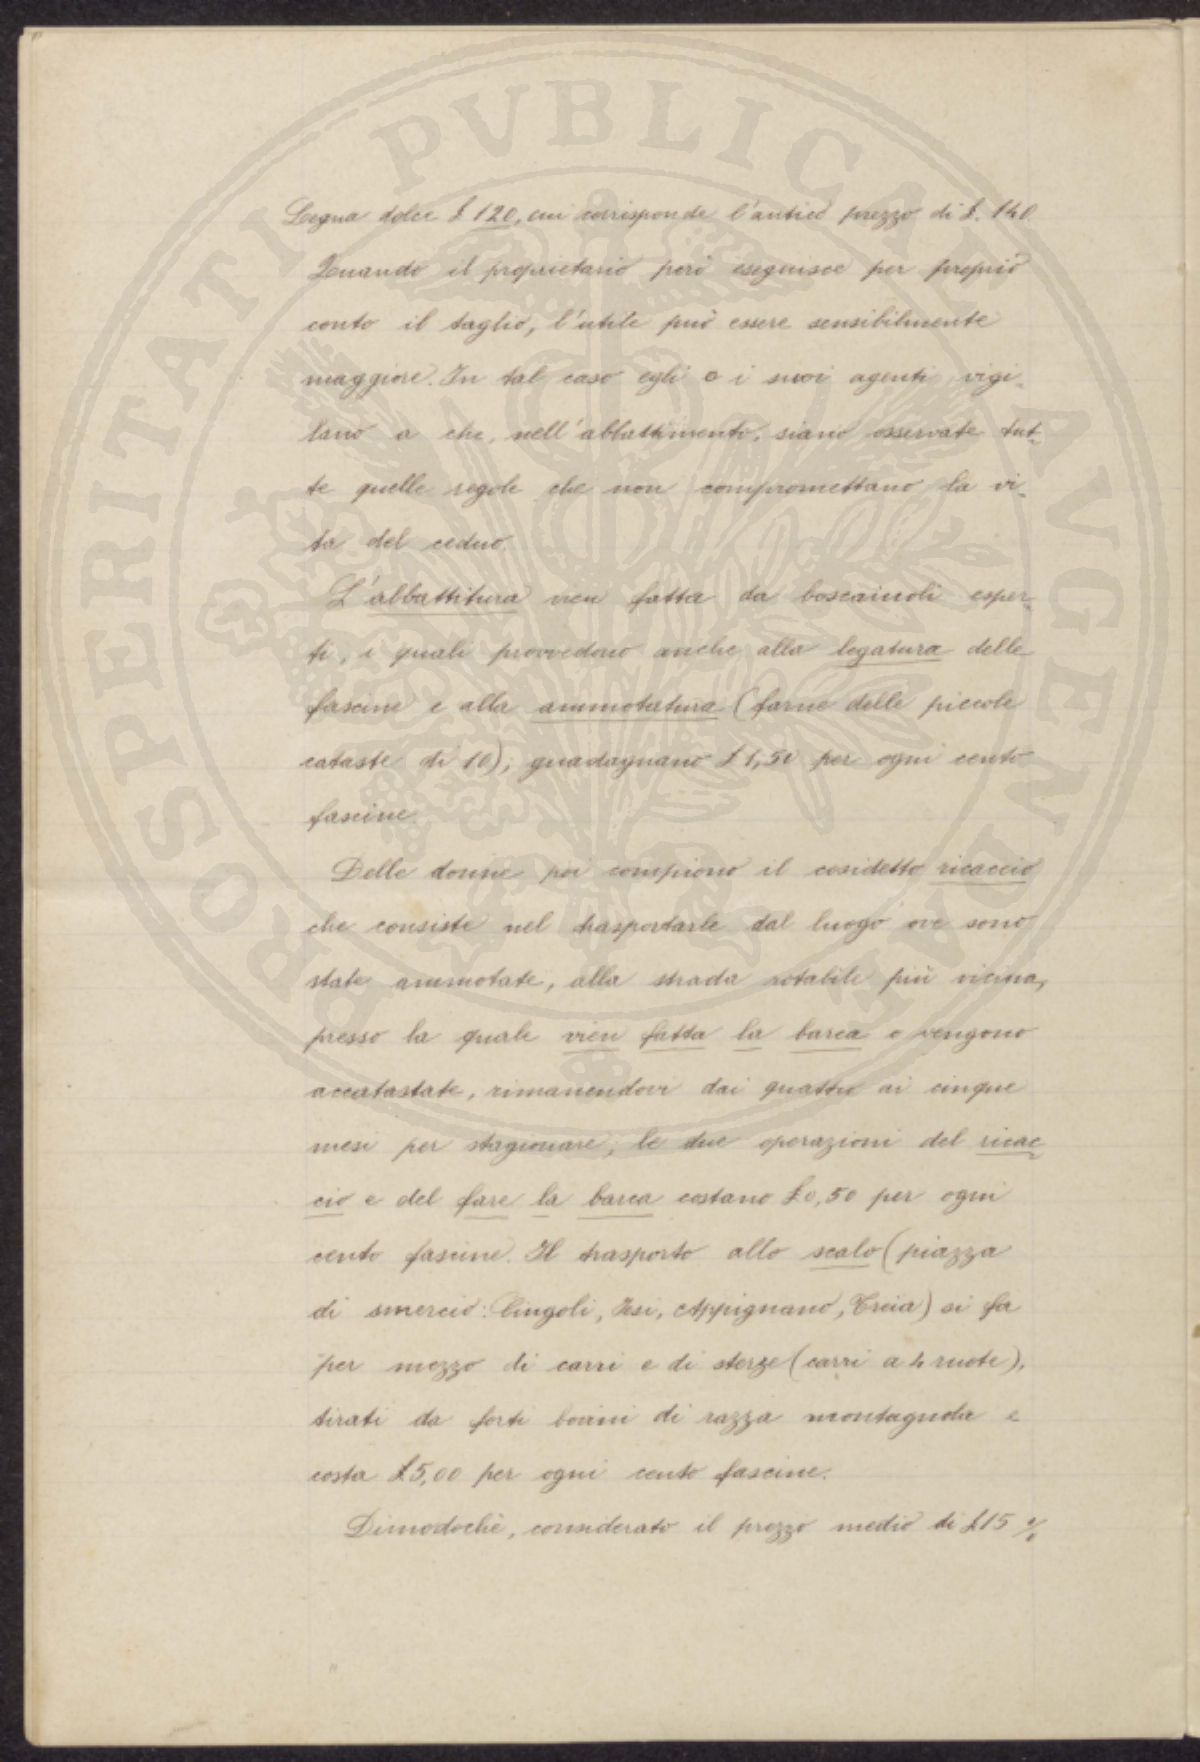 Legna dolce £ 120, cui corrisponde l'antico prezzo di £. 140.
Quando il proprietario però eseguisce per proprio
conto il taglio, l'utile può essere sensibilmente
maggiore. In tal caso egli o i suoi agenti vigi-
lano a che, nell'abbattimento, siano osservate tut-
te quelle regole che non compromettano la vi-
ta del ceduo.
L'abbattitura vien fatta da boscaiuoli esper-
ti, i quali provvedono anche alla legatura delle
fascine e alla ammotatura (farne delle piccole
cataste di 10); guadagnano £ 1,50 per ogni cento
fascine.
Delle donne poi compiono il cosidetto ricaccio
che consiste nel trasportarle dal luogo ove sono
state ammotate, alla strada rotabile più vicina,
presso la quale vien fatta la barca e vengono
accatastate, rimanendovi dai quattro ai cinque
mesi per stagionare; le due operazioni del ricac-
cio e del fare la barca costano £ 0,50 per ogni
cento fascine. Il trasporto allo scalo (piazza
di smercio: Cingoli, Jesi, Appignano, Treia) si fa
per mezzo di carri e di sterze (carri a 4 ruote),
tirati da forti bovini di razza montagnola e
costa £ 5,00 per ogni cento fascine.
Dimodochè, considerato il prezzo medio di £ 15 %
PROSPERITATI PVBLICAE AVGENDAE